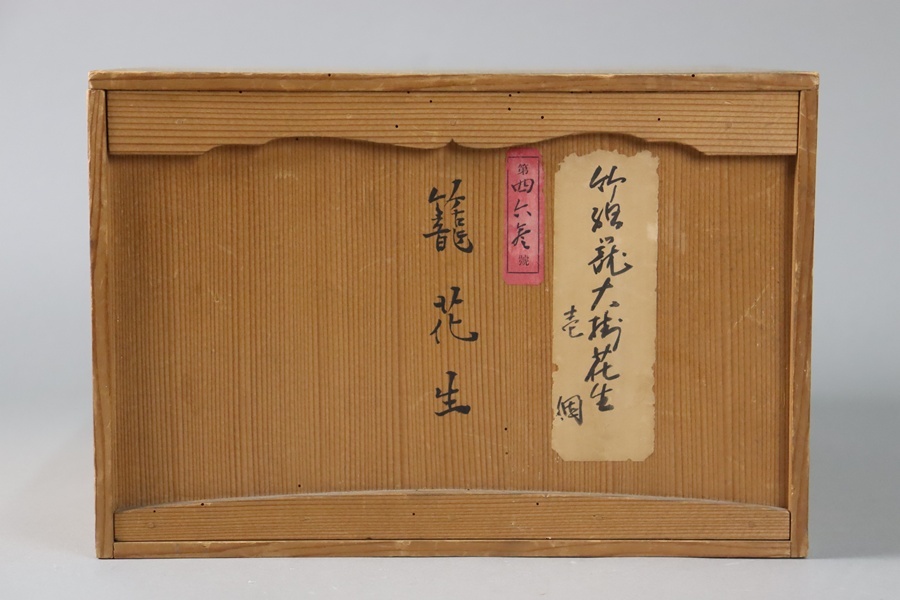 竹組籠大掛花生
壱個
第四六参號
籠花生